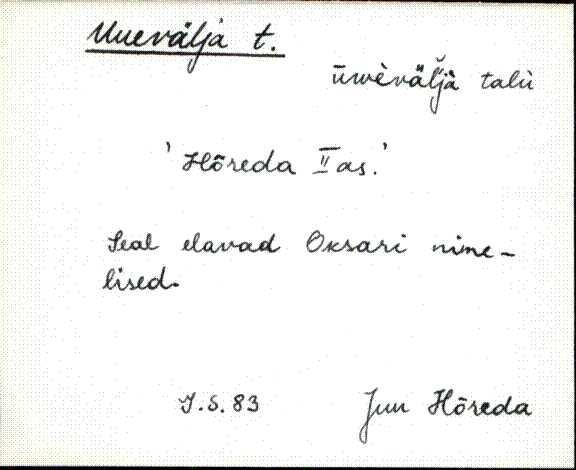 Uuevälja t.
ūwèväl̆jà talù
'Hõreda II as.'
Seal elavad Oksari nime-
lised.
J.S. 83 Juu Hõreda